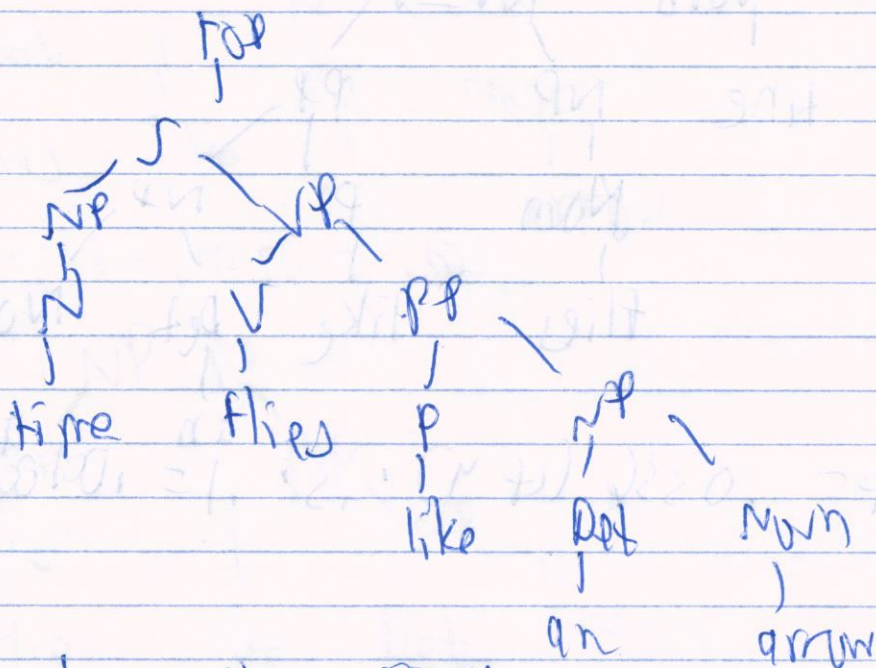 TOP
S
NP VP
N V PP
time flies P NP
like Det Noun
an arrow